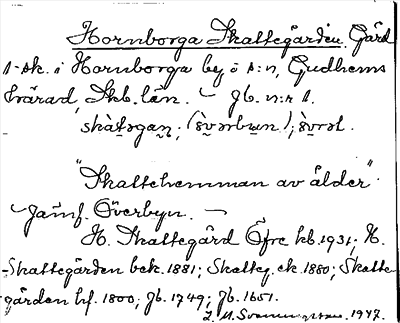 Hornborga Skattegården. Gård
1-sk. i Hornborga by ö k:n, Gudhems
härad, Skb. län. – Jb. n:r 1.
skàtəgan; (ȍvərbyn); ȍvrst.
"Skattehemman av ålder".
– Jämf. Överbyn. –
H. Skattegård Öfre kb. 1931; H.
Skattegården bek. 1881; Skatteg. ek. 1880; Skatte
gården hf. 1800; Jb. 1749; Jb. 1651.
1947.